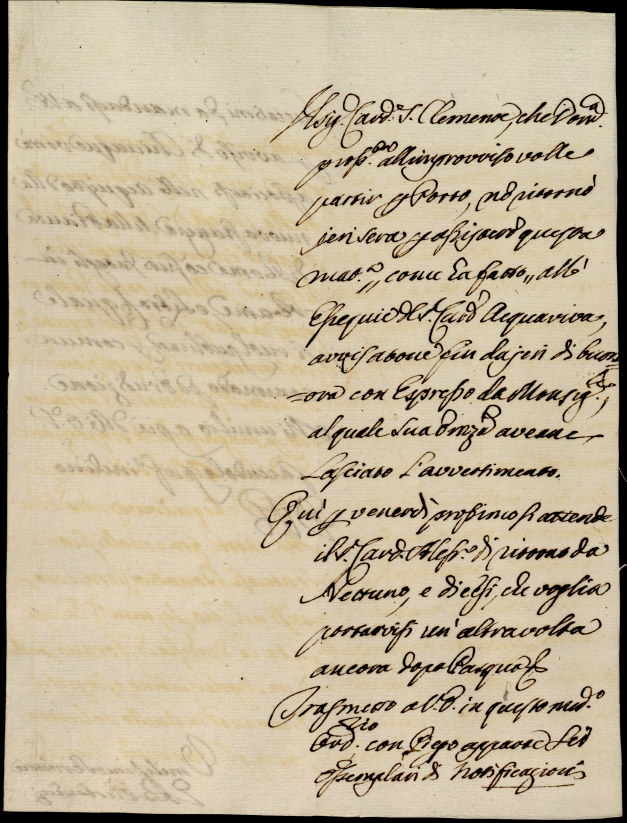 Il Sig.r Card.e S. Clemente, che Dom.a
pross.a all'improvviso volle
partir p Porto, ne ritornò
jeri sera, p assistere questa
mat.a, come ha fatto, alle
Esequie del S.r Card. Acquaviva,
avvisatone fin da jeri di buon
=ora con Espresso da Monsig.r
al quale Sua aveane
lasciato l'avvertimento.
Qui p venerdì prossimo si attende
il S.r Card. Aless.o di ritorno da
Nettuno, e dicesi, che voglia
portarvisi un'altra volta
ancora dopo Pasqua
Trasmetto a V.S. in questo med.o
Ord.rio con Piego a parte sei
Esemplari di Notificazioni